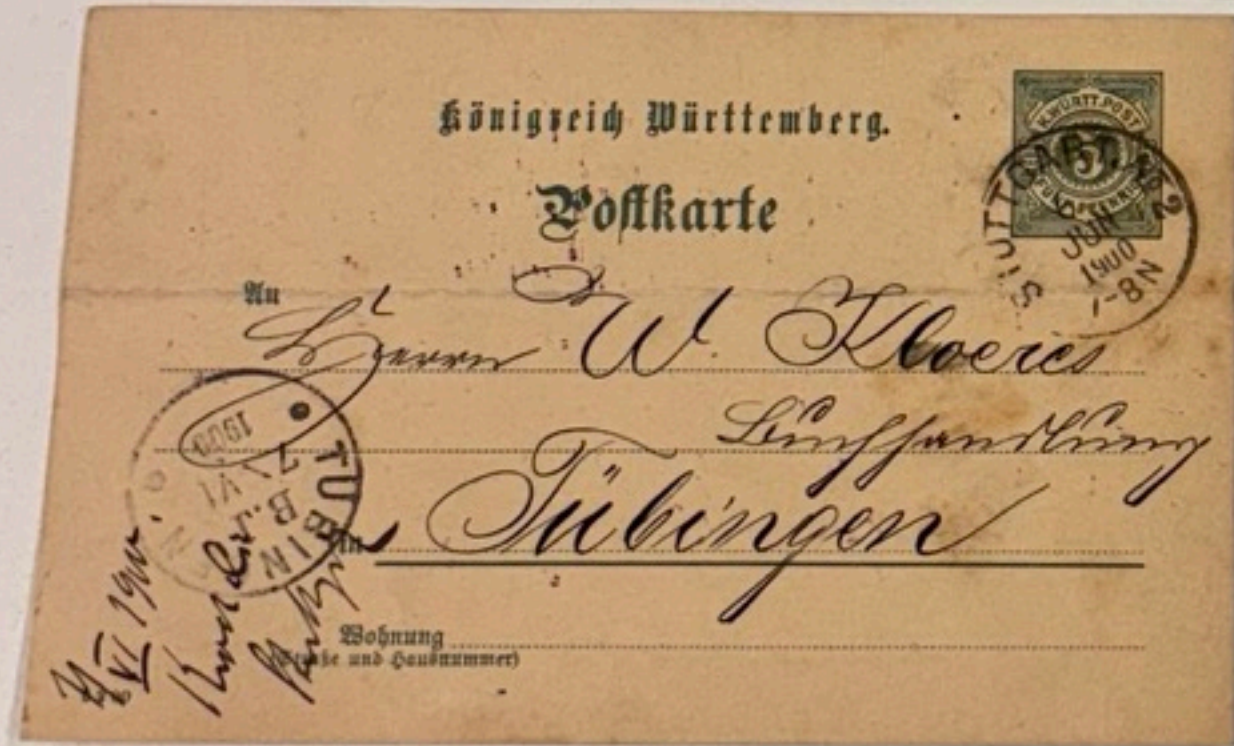 Königreich Württemberg.
Postkarte
K. WÜRTT. POST
5
FÜNF PFENNIG
STUTTGART. No 2
JUN
1900
7-8N
An
Herrn W. Kloeres
Buchhandlung
in Tübingen
Wohnung
(Straße und Hausnummer)
TÜBINGEN
7 VI
1900
VI 1900.